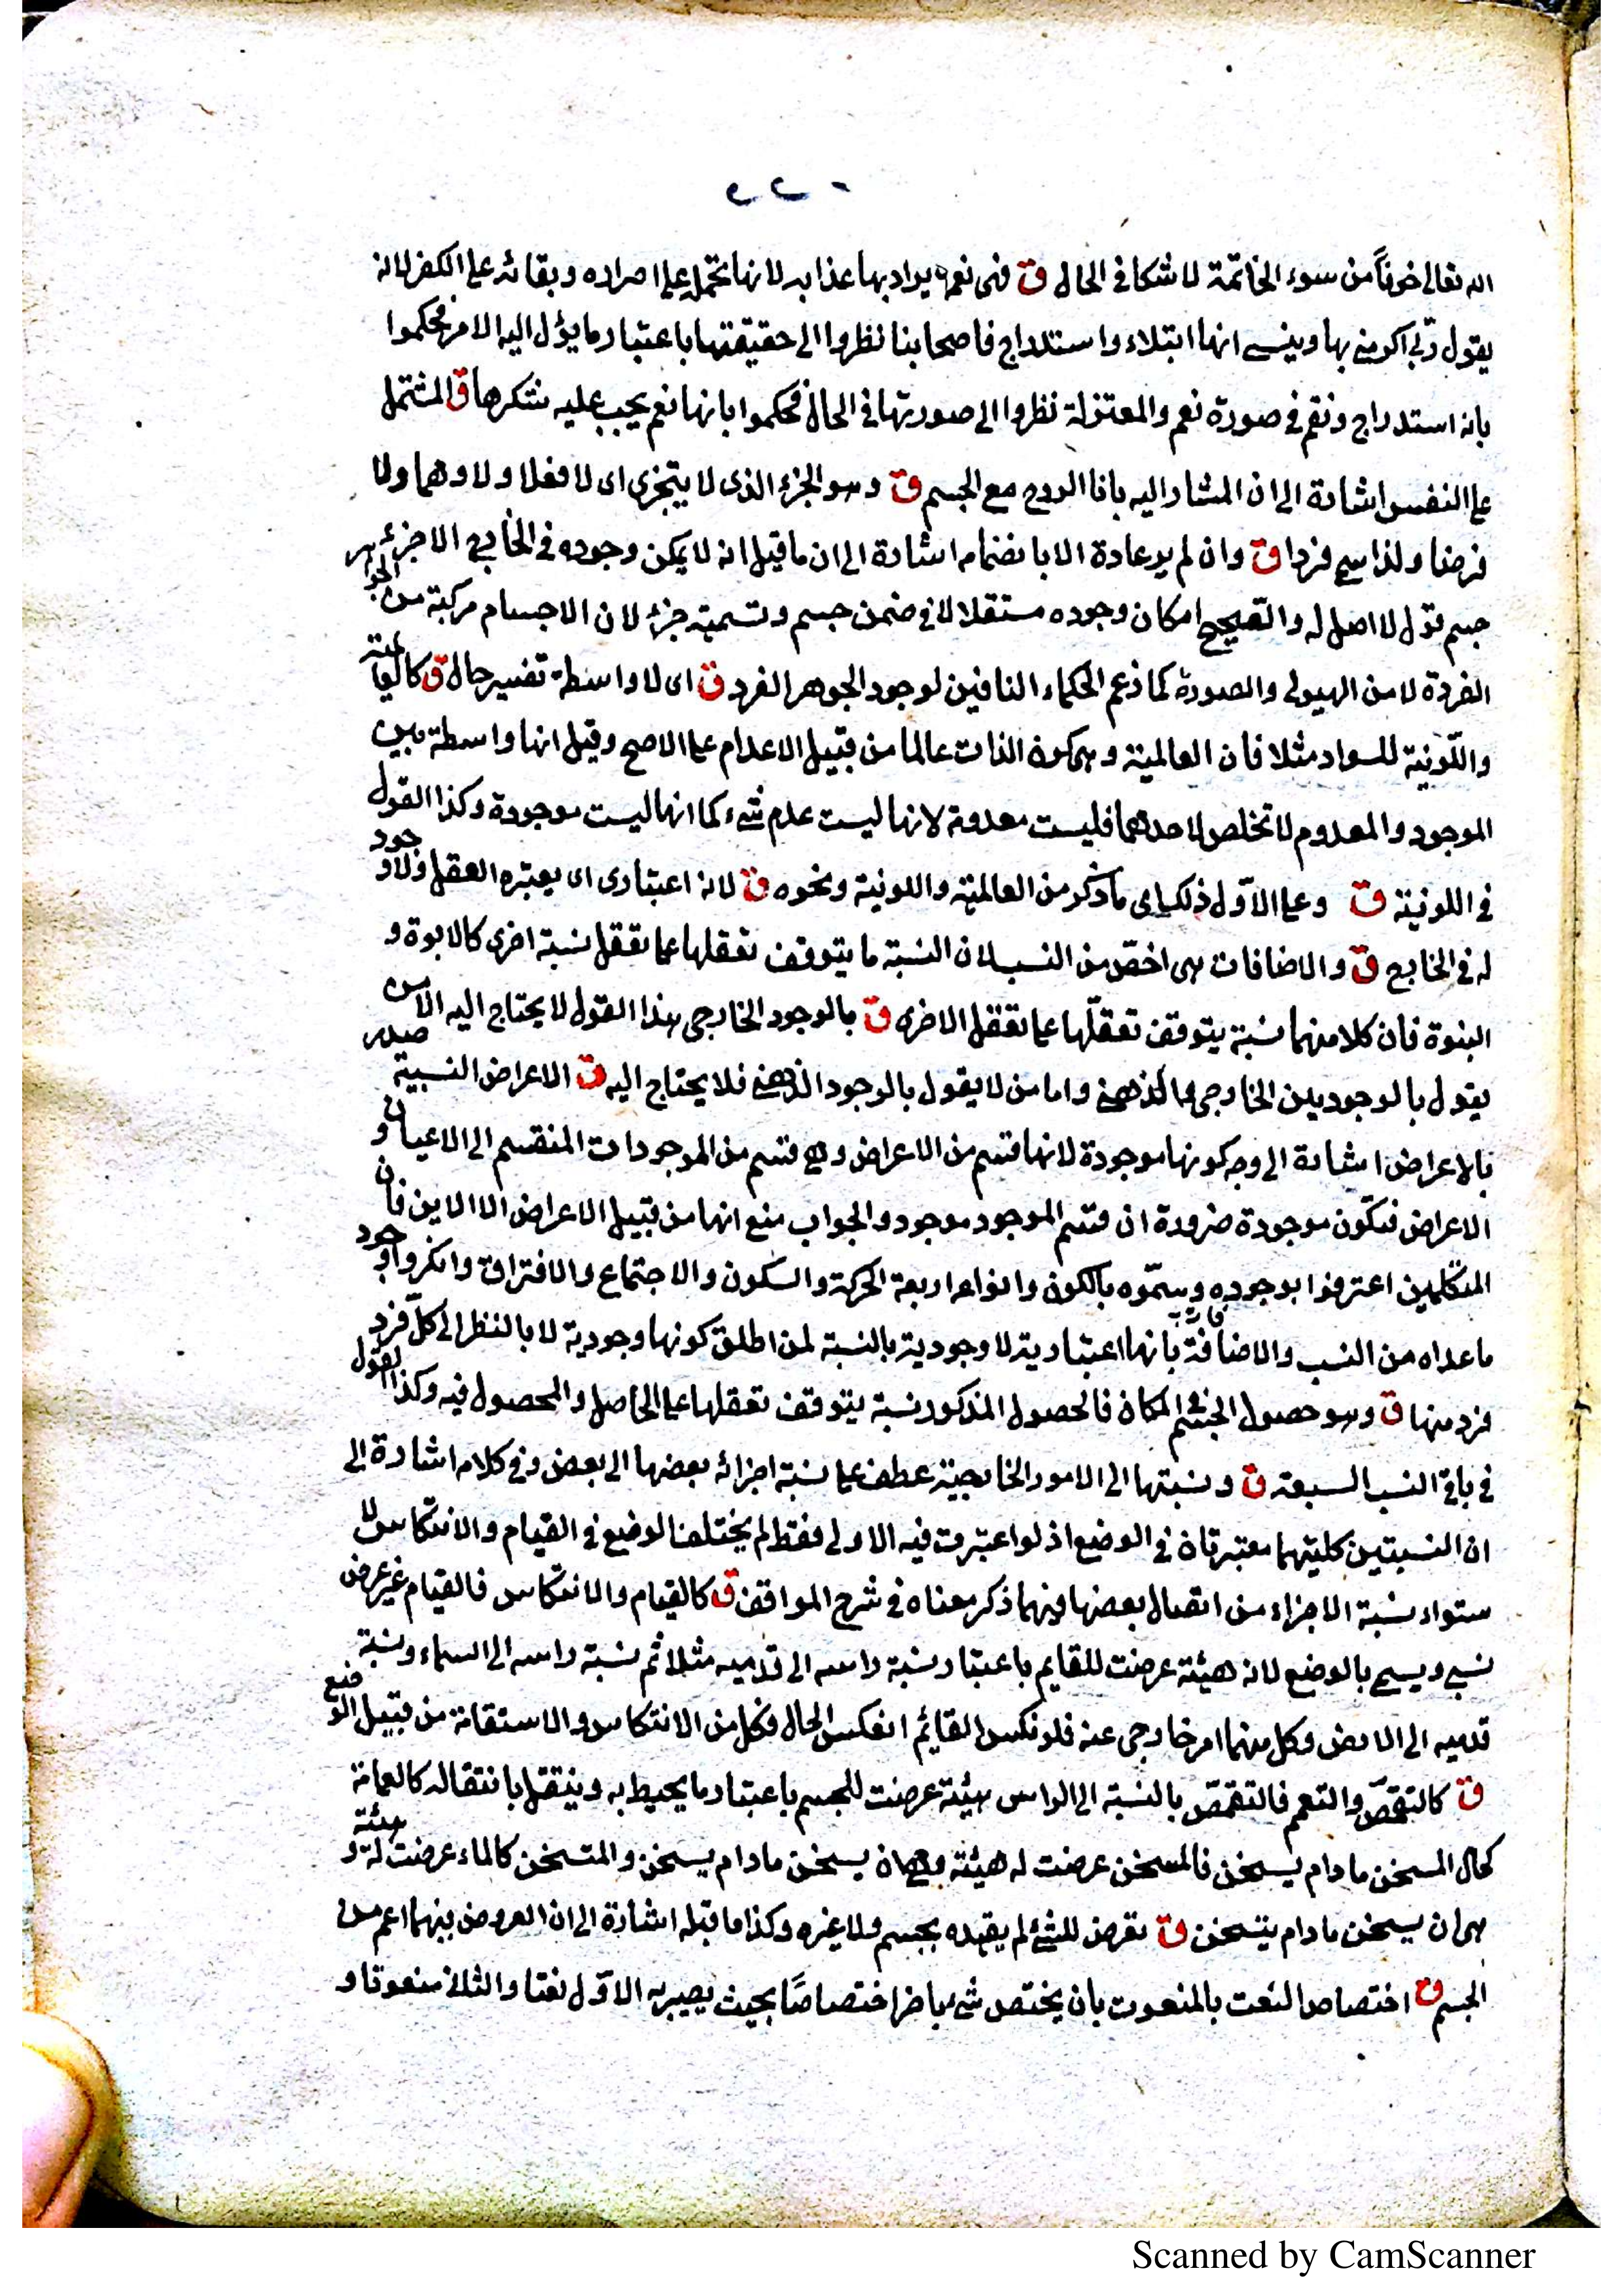 ٢٢٠
الله تعالى خوفاً من سوء الخاتمة لا شكا في الحال ق فهي نعم يراد بها عذابه لانها تحمل على اصراره وبقائه على الكفر لانه
يقول ربّي اكرمني بها وينسى انها ابتلاء واستدراج فاصحابنا نظروا الى حقيقتها باعتبار ما يؤل اليه الامر فحكموا
بانه استدراج ونقم في صورة نعم والمعتزلة نظروا الى صورتها في الحال فحكموا بانها نعم يجب عليه شكرها ق المشتمل
على النفس اشارة الى ان المشار اليه بانا الروح مع الجسم ق وهو الجزء الذى لا يتجزى اى لا فعلا ولا وهما ولا
فرضا ولذا سمى فردا ق وان لم ير عادة الا بانضمام اشارة الى ان ما قيل انه لا يمكن وجوده في الخارج الا جزء
جسم قول لا اصل له والصحيح امكان وجوده مستقلا لا في ضمن جسم وتسميته جزء لان الاجسام مركبة من الجواهر
الفردة لا من الهيولى والصورة كما زعم الحكماء النافين لوجود الجوهر الفرد ق اى لا واسطة تفسير حال ق كالعالمية
واللّونية للسواد مثلا فان العالمية وهى كون الذات عالما من قبيل الاعدام على الاصح وقيل انها واسطة بين
الموجود والمعدوم لا تخلص لاحدهما فليست معدومة لانها ليست عدم شىء كما انها ليست موجودة وكذا القول
في اللونية ق وعلى الاوّل ذلك اى ما ذكر من العالمية واللونية ونحوه ق لانه اعتبارى اى يعتبره العقل ولا وجود
له في الخارج ق والاضافات هى اخصّ من النسب لان النسبة ما يتوقف تعقلها على تعقل نسبة اخرى كالابوة و
البنوة فان كلا منهما نسبة يتوقف تعقّلها على تعقل الاخرى ق بالوجود الخارجى هذا القول لا يحتاج اليه الا من
يقول بالوجودين الخارجى والذهنى واما من لا يقول بالوجود الذهنى فلا يحتاج اليه ق الاعراض النسبية صدر
بالاعراض اشارة الى وجه كونها موجودة لانها قسم من الاعراض وهى قسم من الموجودات المنقسم الى الاعيان و
الاعراض فتكون موجودة ضرورة ان قسم الموجود موجود والجواب منع انها من قبيل الاعراض الا الاين فان
المتكلمين اعترفوا بوجوده وسمّوه بالكون وانواعه اربعة الحركة والسكون والاجتماع والافتراق وانكروا وجود
ما عداه من النسب والاضافة بانها اعتبارية لا وجودية بالنسبة لمن اطلق كونها وجودية لا بالنظر الى كلّ فرد
فرد منها ق وهو حصول الجسم في المكان فالحصول المذكور نسبة يتوقف تعقلها على الحاصل والمحصول فيه وكذا القول
في باقي النسب السبعة ق ونسبتها الى الامور الخارجية عطف على نسبة اجزائه بعضها الى بعض وفي كلامه اشارة الى
ان النسبتين كلتيهما معتبرتان في الوضع اذ لو اعتبرت فيه الاولى فقط لم يختلف الوضع في القيام والانتكاس لا
ستواء نسبة الاجزاء من اتصال بعضها فيهما ذكر معناه في شرح المواقف ق كالقيام والانتكاس فالقيام غير عرض
نسبى ويسمى بالوضع لانه هيئة عرضت للقايم باعتبار نسبة راسه الى قدميه مثلا ثم نسبة راسه الى السماء ونسبة
قدميه الى الارض وكل منهما امر خارجى عنه فلو نكس القائم انعكس الحال فكل من الانتكاس والاستقامة من قبيل الوضع
ق كالتقمّص والتعمم فالتقمّص بالنسبة الى الراس هيئة عرضت للجسم باعتبار ما يحيط به وينتقل بانتقاله كالعمامة
كحال المسخن ما دام يسخن فالمسخن عرضت له هيئة وهى ان يسخن ما دام يسخن والمتسخن كالماء عرضت له هيئة و
هى ان يسخن ما دام يتسخن ق تعرض للشئ لم يقيده بجسم ولا غيره وكذا ما قبله اشارة الى ان العروض بينهما اعم من
الجسم ق اختصاص النعت بالمنعوت بان يختص شئ باخر اختصاصًا بحيث يصير به الاوّل نعتا والثانى منعوتا و
Scanned by CamScanner